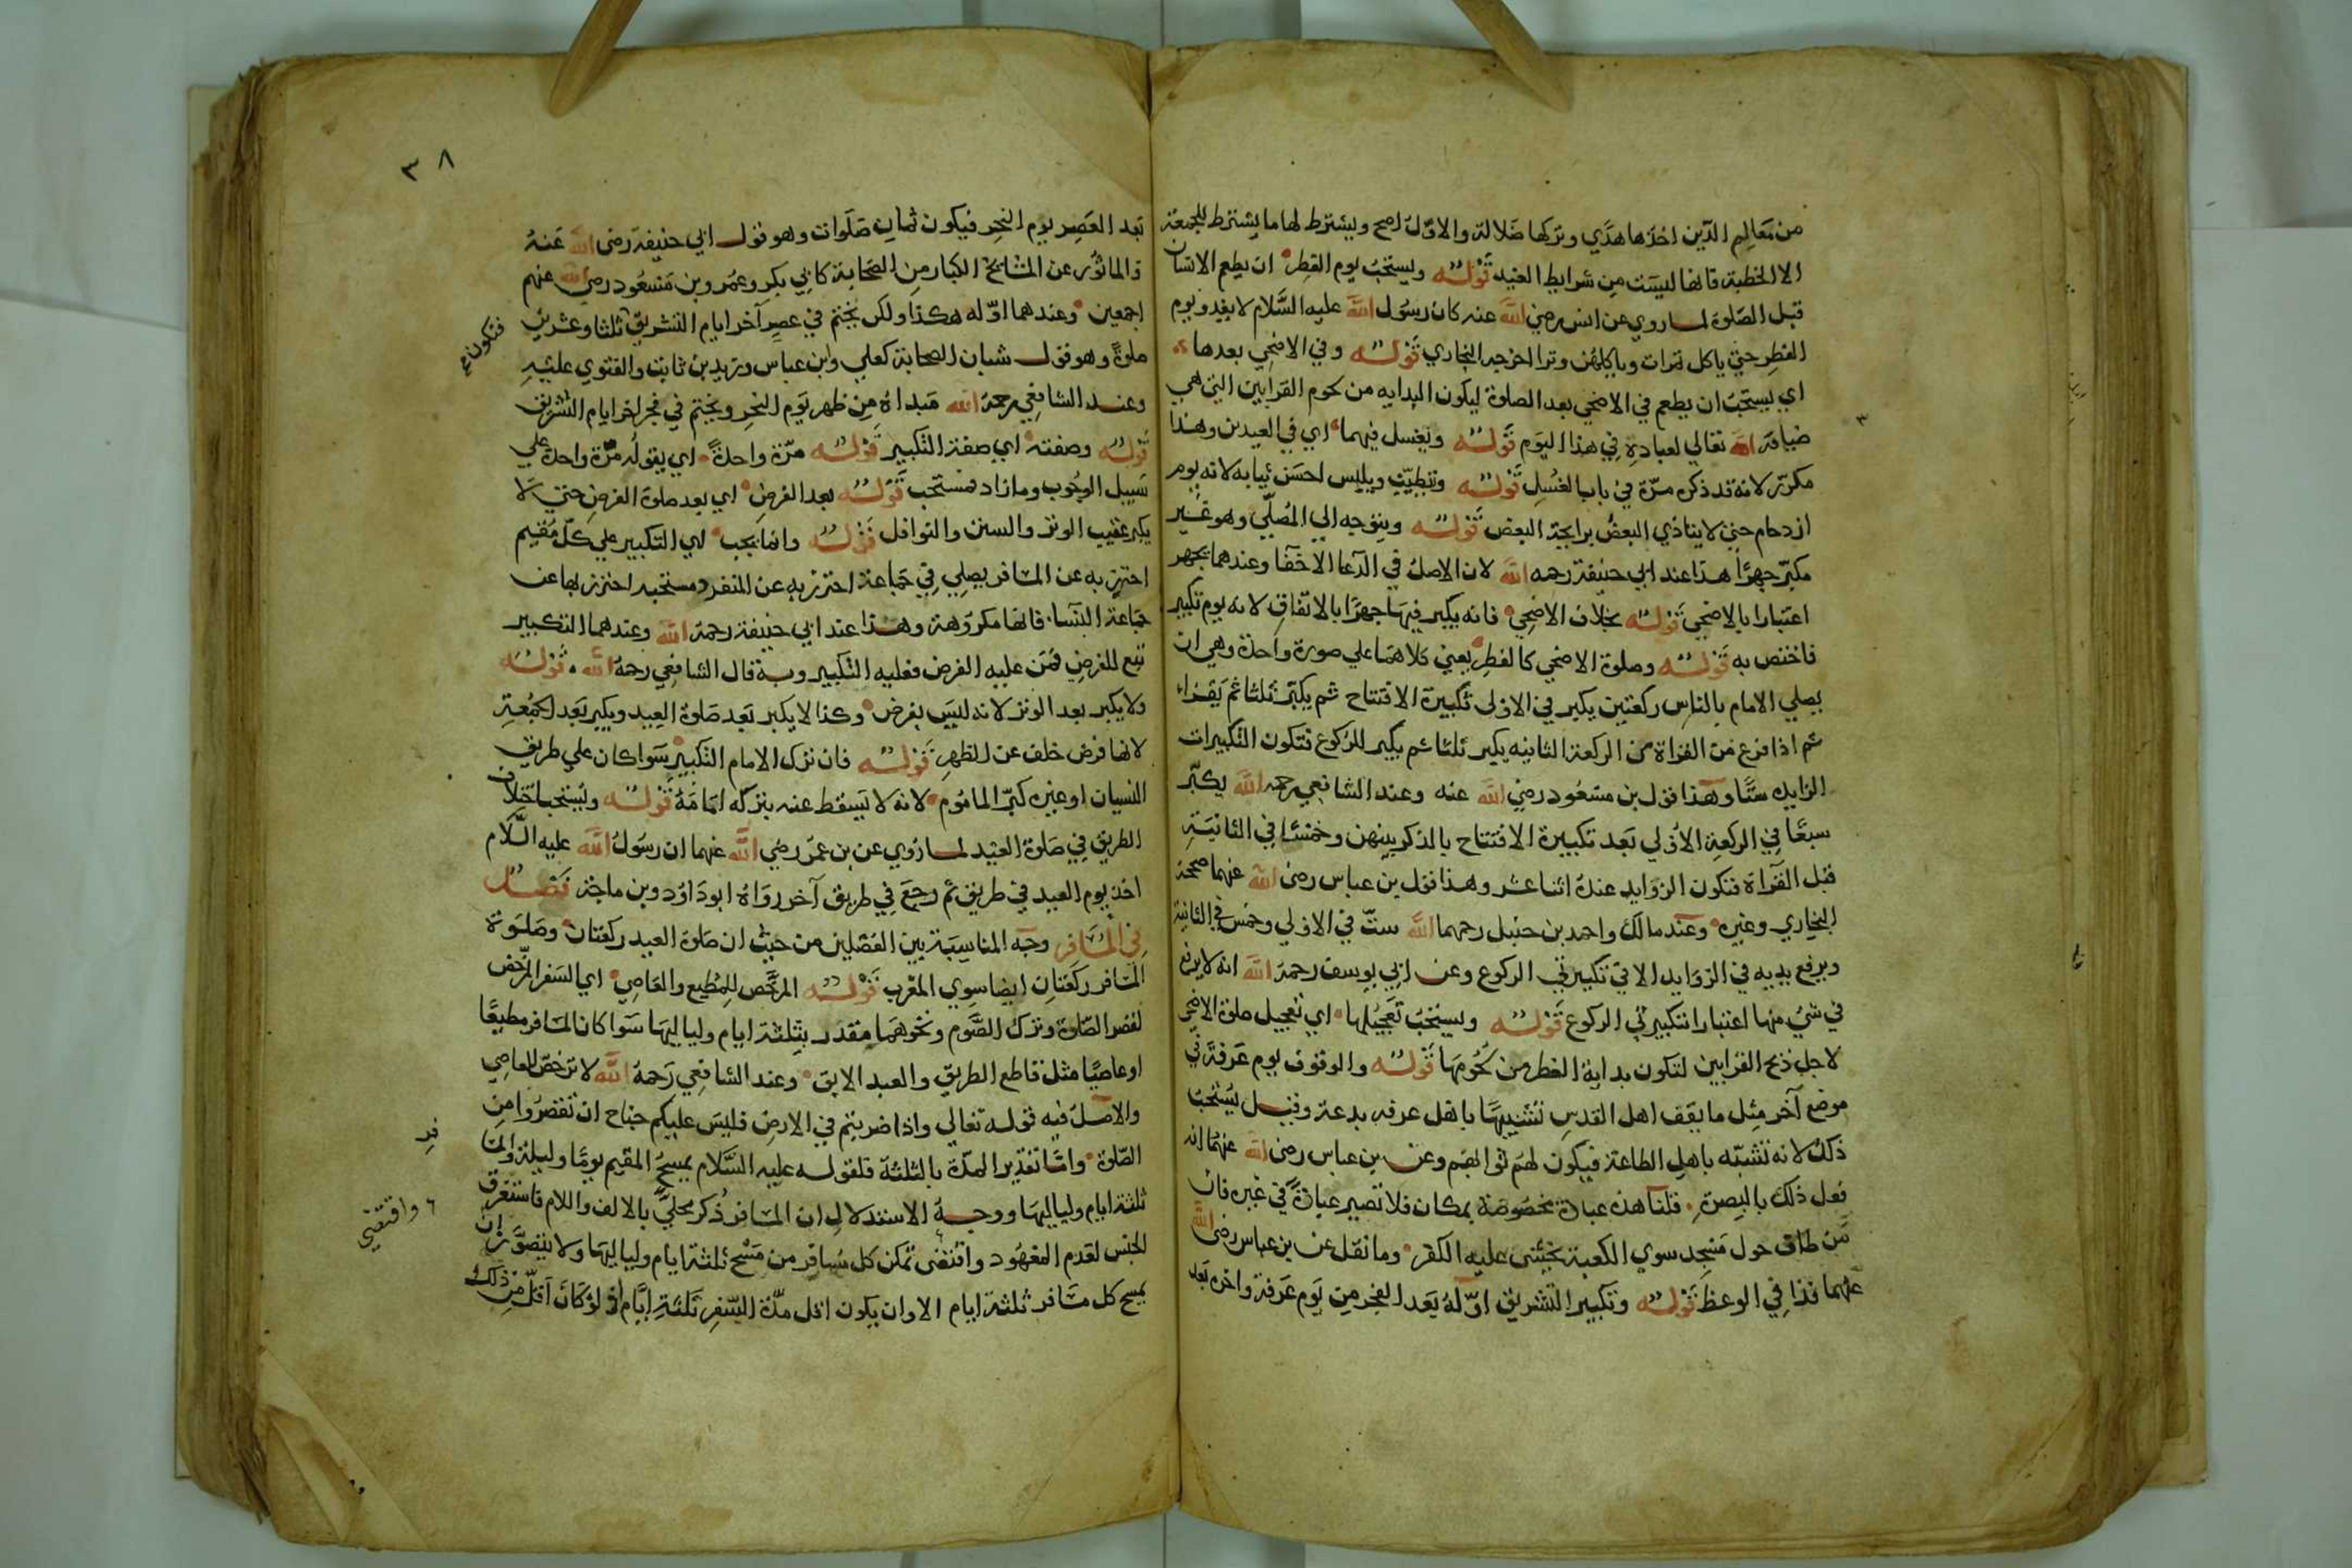 من معالم الدين اخذها هدي وتركها ضلالة والاول اصح ويشترط لها ما يشترط للجمعة
الا الخطبة فانها ليست من شرايط العيد قوله ويستحب يوم الفطر ان يطعم الانسان
قبل الصلوة لما روي عن انس رضي الله عنه كان رسول الله عليه السلام لا يغدو يوم
الفطر حتي ياكل تمرات وياكلهن وترا اخرجه البخاري قوله وفي الاضحي بعدها
اي يستحب ان يطعم في الاضحي بعد الصلوة ليكون البدايه من لحوم القرابين التي هي
ضيافة الله تعالي لعباده في هذا اليوم قوله ويغسل فيهما اي في العيدين وهذا
مكرر لانه قد ذكره مرة في باب الغسل قوله وتتطيب ويلبس احسن ثيابه لانه يوم
ازدحام حتي لا يتاذي البعض برايحة البعض قوله ويتوجه الي المصلي وهو غير
مكبر جهرا هذا عند ابي حنيفة رحمه الله لان الاصل في الدعا الاخفا وعندهما يجهر
اعتبارا بالاضحي قوله بخلاف الاضحي فانه يكبر فيها جهرا بالاتفاق لانه يوم تكبير
فاختص به قوله وصلوة الاضحي كالفطر يعني كلاهما علي صورة واحدة وهي ان
يصلي الامام بالناس ركعتين يكبر في الاولي تكبيرة الافتتاح ثم يكبر ثلثا ثم يقراء
ثم اذا فرغ من القراة من الركعة الثانيه يكبر ثلثا ثم يكبر للركوع فتكون التكبيرات
الزايده ستا وهذا قول بن مسعود رضي الله عنه وعند الشافعي رحمه الله يكبر
سبعا في الركعة الاولي بعد تكبيرة الافتتاح بالذكر بينهن وخمسا في الثانية
قبل القراة فتكون الزوايد عنده اثنا عشر وهذا قول بن عباس رضي الله عنهما صححه
البخاري وغيره وعند مالك واحمد بن حنبل رحمهما الله ست في الاولي وخمس في الثانية
ويرفع يديه في الزوايد الا في تكبيرتي الركوع وعن ابي يوسف رحمه الله انه لا يرفع
في شئ منها اعتبارا بتكبيرتي الركوع قوله ويستحب تعجيلها اي تعجيل صلوة الاضحي
لاجل ذبح القرابين لتكون بداية الفطر من لحومها قوله والوقوف يوم عرفة في
موضع آخر مثل ما يقف اهل القدس تشبيها باهل عرفه بدعة وقيل يستحب
ذلك لانه تشبه باهل الطاعة فيكون لهم ثوابهم وعن بن عباس رضي الله عنهما انه
فعل ذلك بالبصرة قلنا هذه عبادة مخصوصة بمكان فلا تصير عبادة في غيره فان
من طاف حول مسجد سوي الكعبة يخشي عليه الكفر وما نقل عن بن عباس رضي الله
عنهما فذا في الوعظ قوله وتكبير التشريق اوله بعد الفجر من يوم عرفة واخره بعد
٣٨
بعد العصر يوم النحر فيكون ثمان صلوات وهو قول ابي حنيفة رضي الله عنه
والماثور عن المشائخ الكبار من الصحابة كابي بكر وعمر وبن مسعود رضي الله عنهم
اجمعين وعندهما اوله هكذا ولكن يختم في عصر آخر ايام التشريق ثلثا وعشرين
صلوة وهو قول شبان الصحابة كعلي وابن عباس وزيد بن ثابت والفتوي عليه
فتكون
وعند الشافعي رحمه الله مبداه من ظهر يوم النحر ويختم في فجر اخر ايام التشريق
قوله وصفته اي صفة التكبير قوله مرة واحدة اي يقوله مرة واحدة علي
سبيل الوجوب وما زاد فمستحب قوله بعد الفرض اي بعد صلوة الفرض حتي لا
يكبر عقيب الوتر والسنن والنوافل قوله وانما يجب اي التكبير علي كل مقيم
احترز به عن المسافر يصلي في جماعة احترز به عن المنفرد ومستحبه احترز بها عن
جماعة النسا فانها مكروهة وهذا عند ابي حنيفة رحمه الله وعندهما التكبير
تبع للفرض فمن عليه الفرض فعليه التكبير وبه قال الشافعي رحمه الله قوله
ولا يكبر بعد الوتر لانه ليس بفرض وكذا لا يكبر بعد صلوة العيد ويكبر بعد الجمعة
لانها فرض خلف عن الظهر قوله فان ترك الامام التكبير سوا كان علي طريق
النسيان او غيره كبر الماموم لانه لا يسقط عنه بتركه امامه قوله ويستحب اختلاف
الطريق في صلوة العيد لما روي عن بن عمر رضي الله عنهما ان رسول الله عليه السلام
اخذ يوم العيد في طريق ثم رجع في طريق آخر رواه ابو داود وبن ماجة فصل
في المسافر وجه المناسبة بين الفصلين من حيث ان صلوة العيد ركعتان وصلوة
المسافر ركعتان ايضا سوي المغرب قوله المرخص للمطيع والعاصي اي السفر المرخص
لقصر الصلوة وترك الصوم ونحوهما مقدر بثلثة ايام ولياليها سوا كان المسافر مطيعا
او عاصيا مثل قاطع الطريق والعبد الابق وعند الشافعي رحمه الله لا ترخص للعاصي
والاصل فيه قوله تعالي واذا ضربتم في الارض فليس عليكم جناح ان تقصروا من
الصلوة واما تقدير المدة بالثلثة فلقوله عليه السلام يمسح المقيم يوما وليلة والمسا
فر
ثلثة ايام ولياليها ووجه الاستدلال ان المسافر ذكر محلي بالالف واللام فاستغرق
الجنس لعدم المعهود واقتضي تمكن كل مسافر من مسح ثلثة ايام ولياليها ولا يتصور ان
٦ واقتضي
يمسح كل مسافر ثلثة ايام الا وان يكون اقل مدة السفر ثلثة ايام اذ لو كان اقل من ذلك